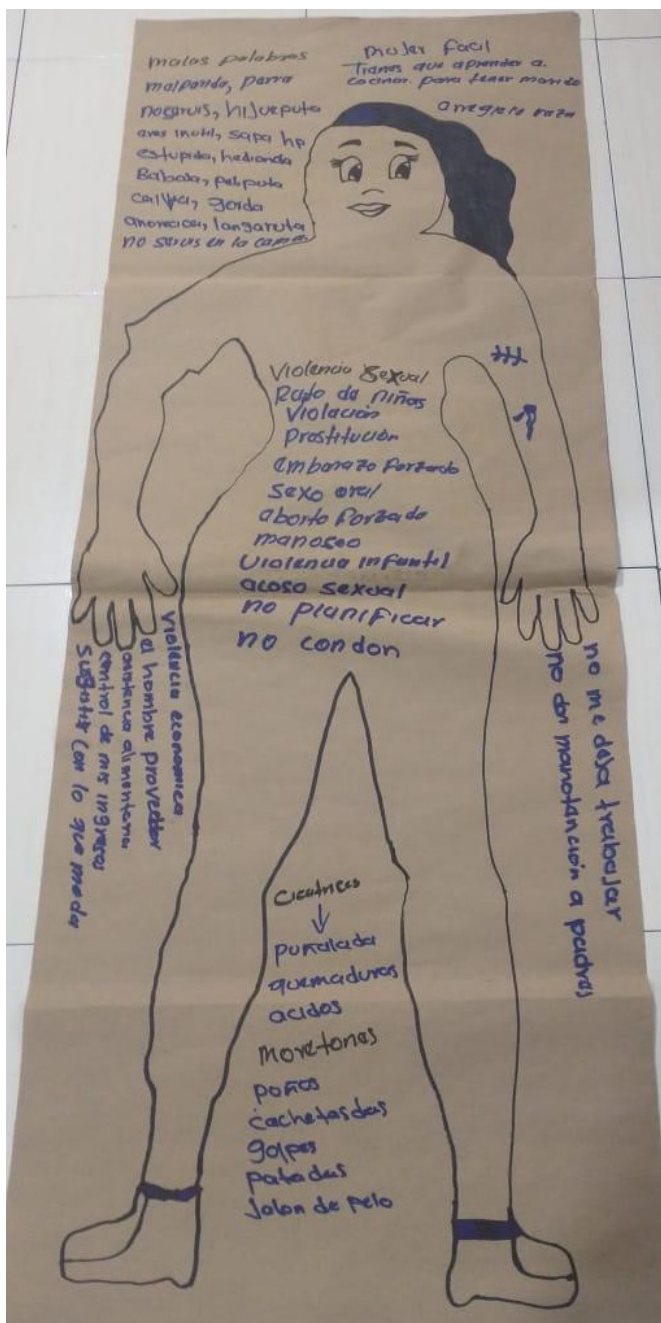 malas palabras
malparida, perra
nosarvis, hijueputa
ares inutil, sapa hp
estupida, hedionda
Babosa,
gorda
langaruta
no servis en la cama
mujer facil
Tienes que aprender a
cocinar para tener marido
arregleto
Violencia Sexual
Rapto de niñas
Violación
Prostitución
embarazo forzado
sexo oral
aborto forzado
manoseo
Violencia infantil
acoso sexual
no planificar
no condon
violencia economica
el hombre proveedor
alimentaria
control de mis ingresos
con lo que me da
no me deja trabajar
no dan manotanción a padres
cicatrices
puñalada
quemaduras
acidos
moretones
poños
cachetasdas
golpes
patadas
Jalon de pelo